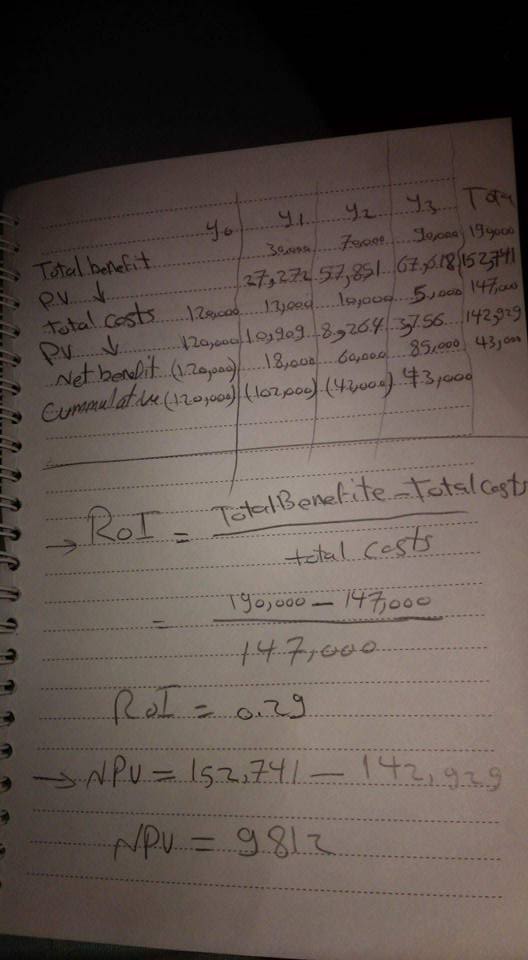 y0 y1 y2 y3 Total
Total benefit 30,000 70,000 90,000 190,000
PV ↓ 27,272 57,851 67,618 152,741
total costs 120,000 12,000 10,000 5,000 147,000
PV ↓ 120,000 10,909 8,264 3,756 142,929
Net benbit (120,000) 18,000 60,000 85,000 43,000
Cummulative (120,000) (102,000) (42,000) 43,000
→ RoI = TotalBenefite - Totalcosts
total costs
= 190,000 - 147,000
147,000
RoI = 0.29
→ NPV = 152,741 - 142,929
NPV = 9812